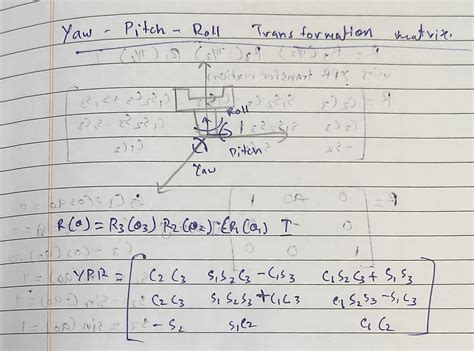 Yaw - Pitch - Roll Transformation matrix.
Roll
Pitch
Yaw
R(θ) = R₃(θ₃) R₂(θ₂) R₁(θ₁) I
YPR = [ C₂C₃ S₁S₂C₃ - C₁S₃ C₁S₂C₃ + S₁S₃
C₂C₃ S₁S₂S₃ + C₁C₃ C₁S₂S₃ - S₁C₃
-S₂ S₁C₂ C₁C₂ ]